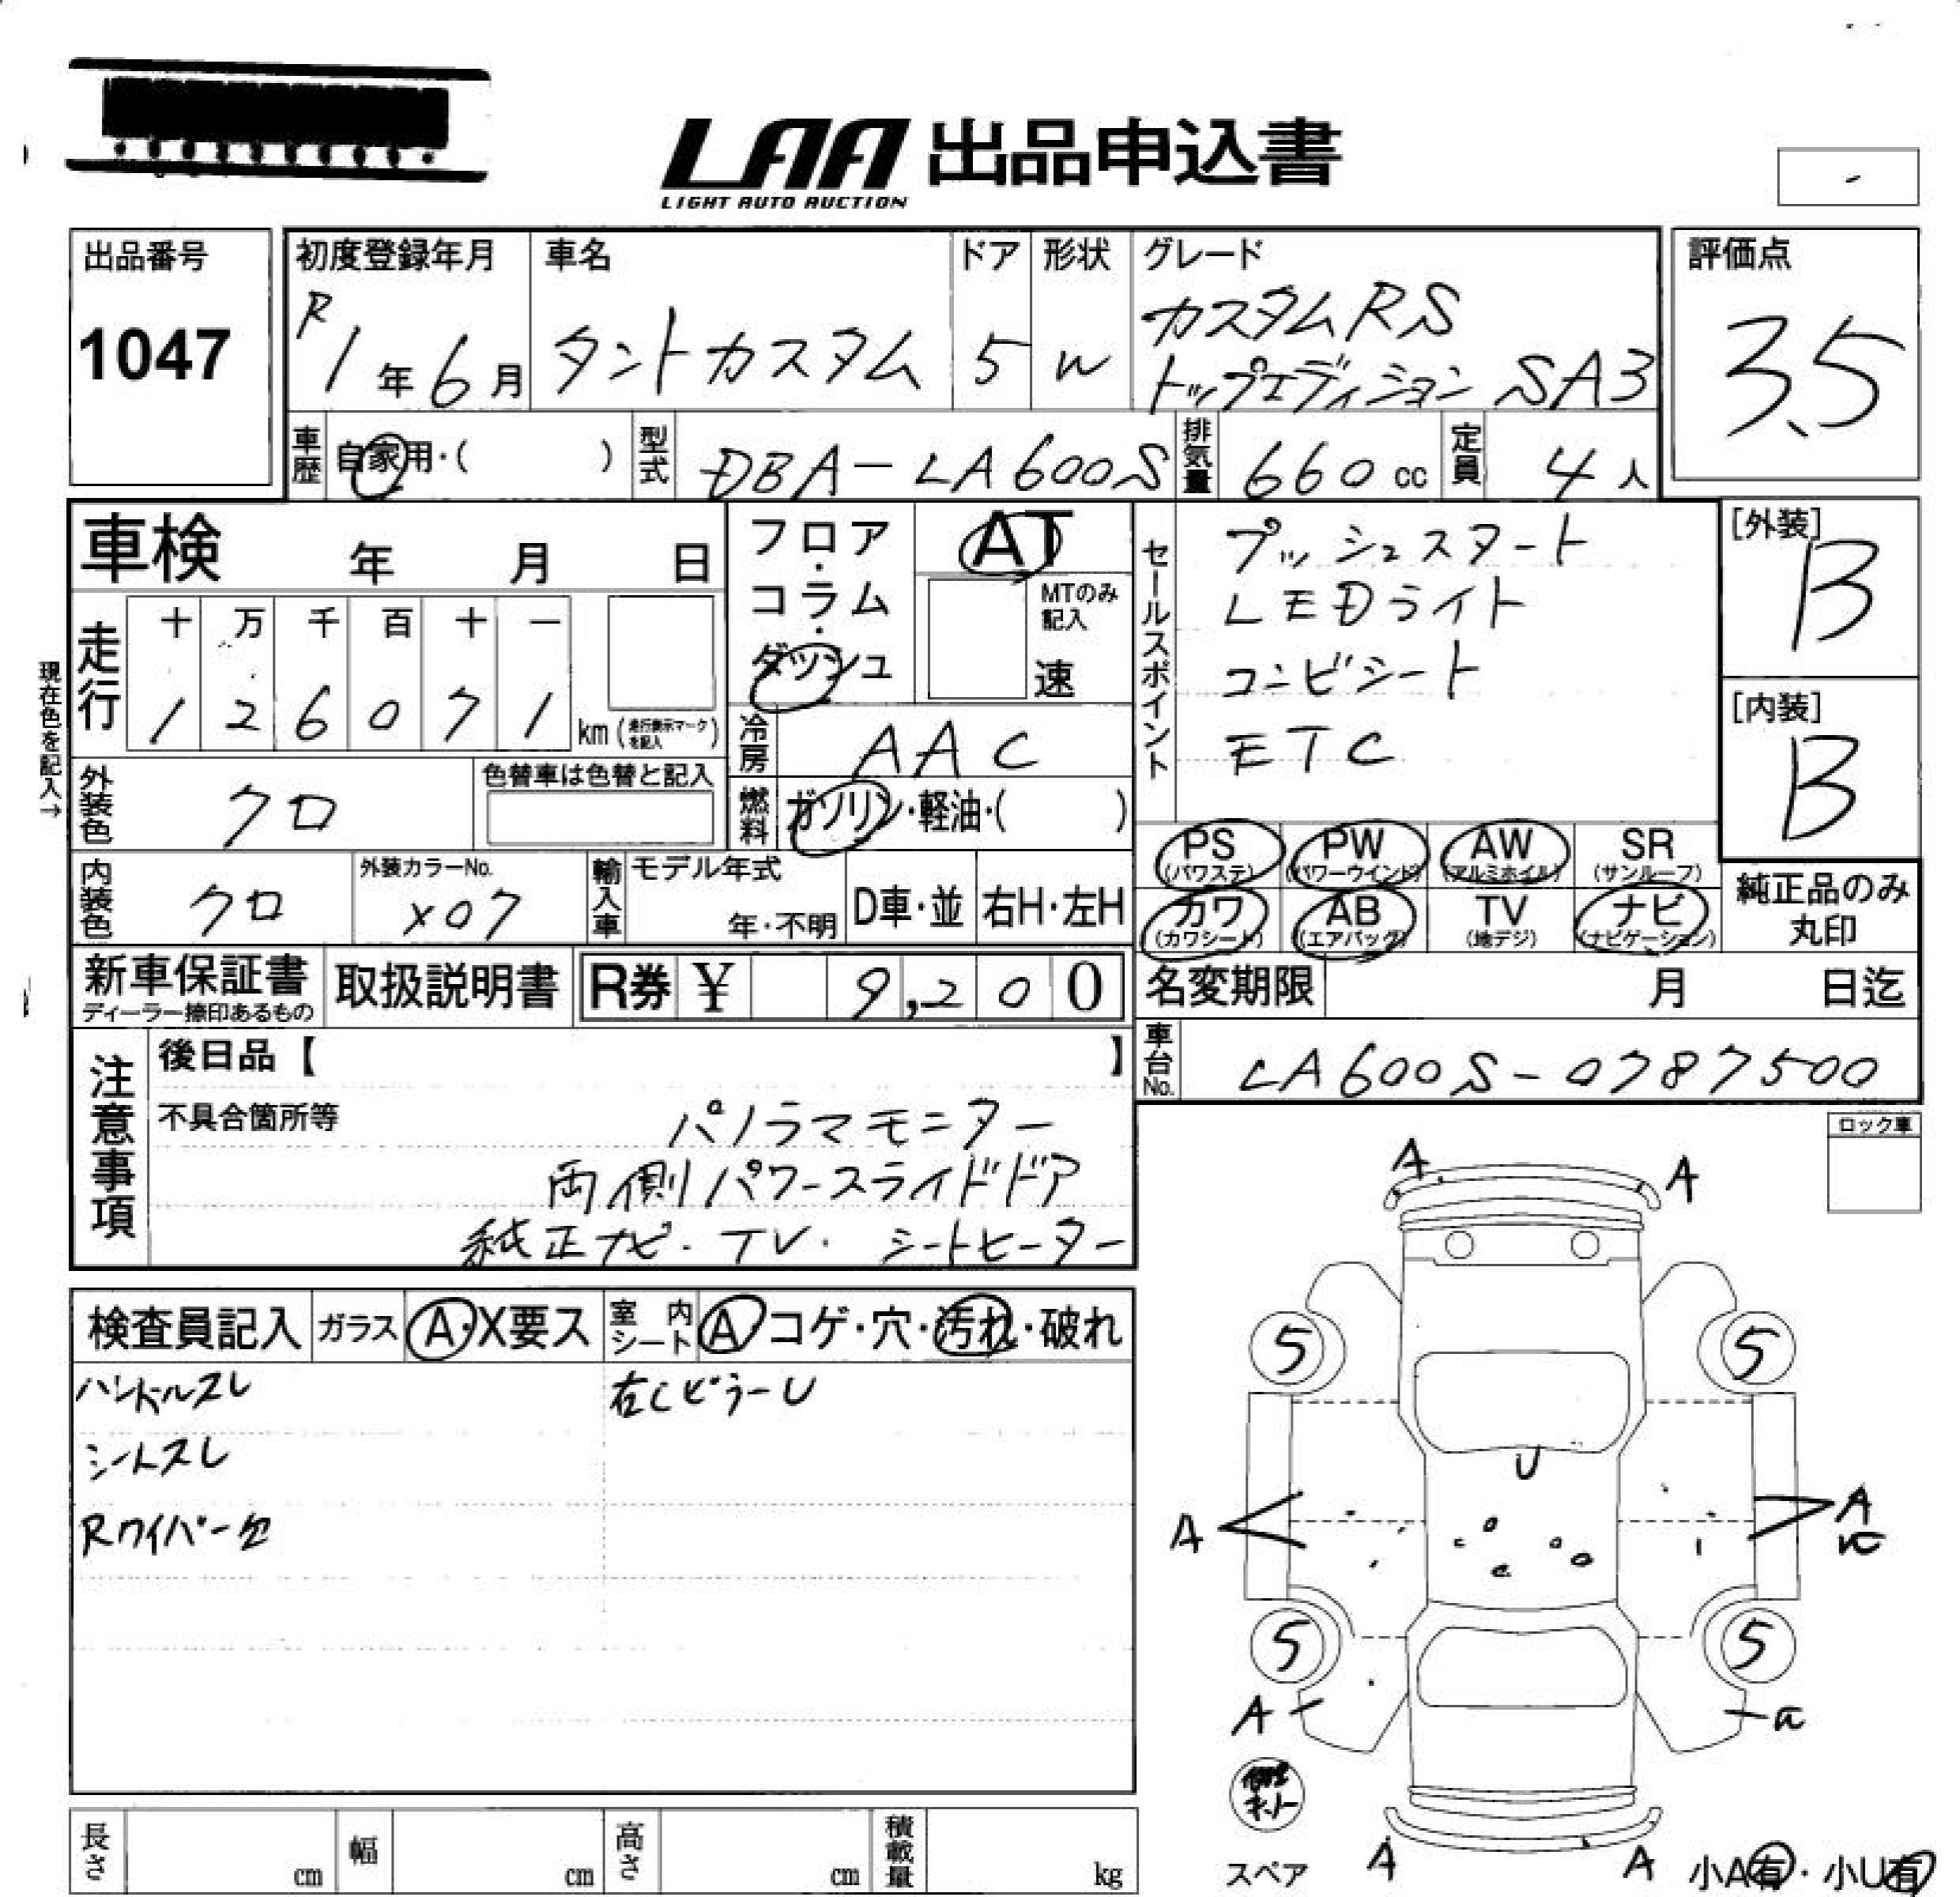 LAA 出品申込書
LIGHT AUTO AUCTION
-
出品番号
1047
初度登録年月
R1年6月
車名
タントカスタム
ドア
5
形状
W
グレード
カスタムRS
トップエディション SA3
評価点
3.5
車歴 自家用・( )
型式 DBA-LA600S
排気量 660cc
定員 4人
車検 年 月 日
フロア・コラム・ダッシュ
AT
MTのみ記入
速
セールスポイント
プッシュスタート
LEDライト
コンビシート
ETC
[外装]
B
[内装]
B
現在色を記入→
走行
十 万 千 百 十 一
1 2 6 0 7 1 km (走行表示マークを記入)
冷房 AAC
外装色 クロ
色替車は色替と記入
燃料 ガソリン・軽油・( )
PS (パワステ) PW (パワーウインド) AW (アルミホイル) SR (サンルーフ)
カワ (カワシート) AB (エアバッグ) TV (地デジ) ナビ (ナビゲーション)
純正品のみ丸印
内装色 クロ
外装カラーNo.
X07
輸入車
モデル年式
年・不明
D車・並
右H・左H
新車保証書
ディーラー捺印あるもの
取扱説明書
R券 ¥ 9,200
名変期限 月 日迄
車台No. LA600S-0787500
注意事項
後日品【 】
不具合箇所等
パノラマモニター
両側パワースライドドア
純正ナビ・TV・シートヒーター
ロック車
検査員記入
ガラス A・X要ス
室内シート A コゲ・穴・汚れ・破れ
ハンドルスレ
シートスレ
Rワイパー欠
右CピラーU
A
A
5
5
U
A
A
5
5
A
a
スペア
A
A
小A有・小U有
長さ cm
幅 cm
高さ cm
積載量 kg